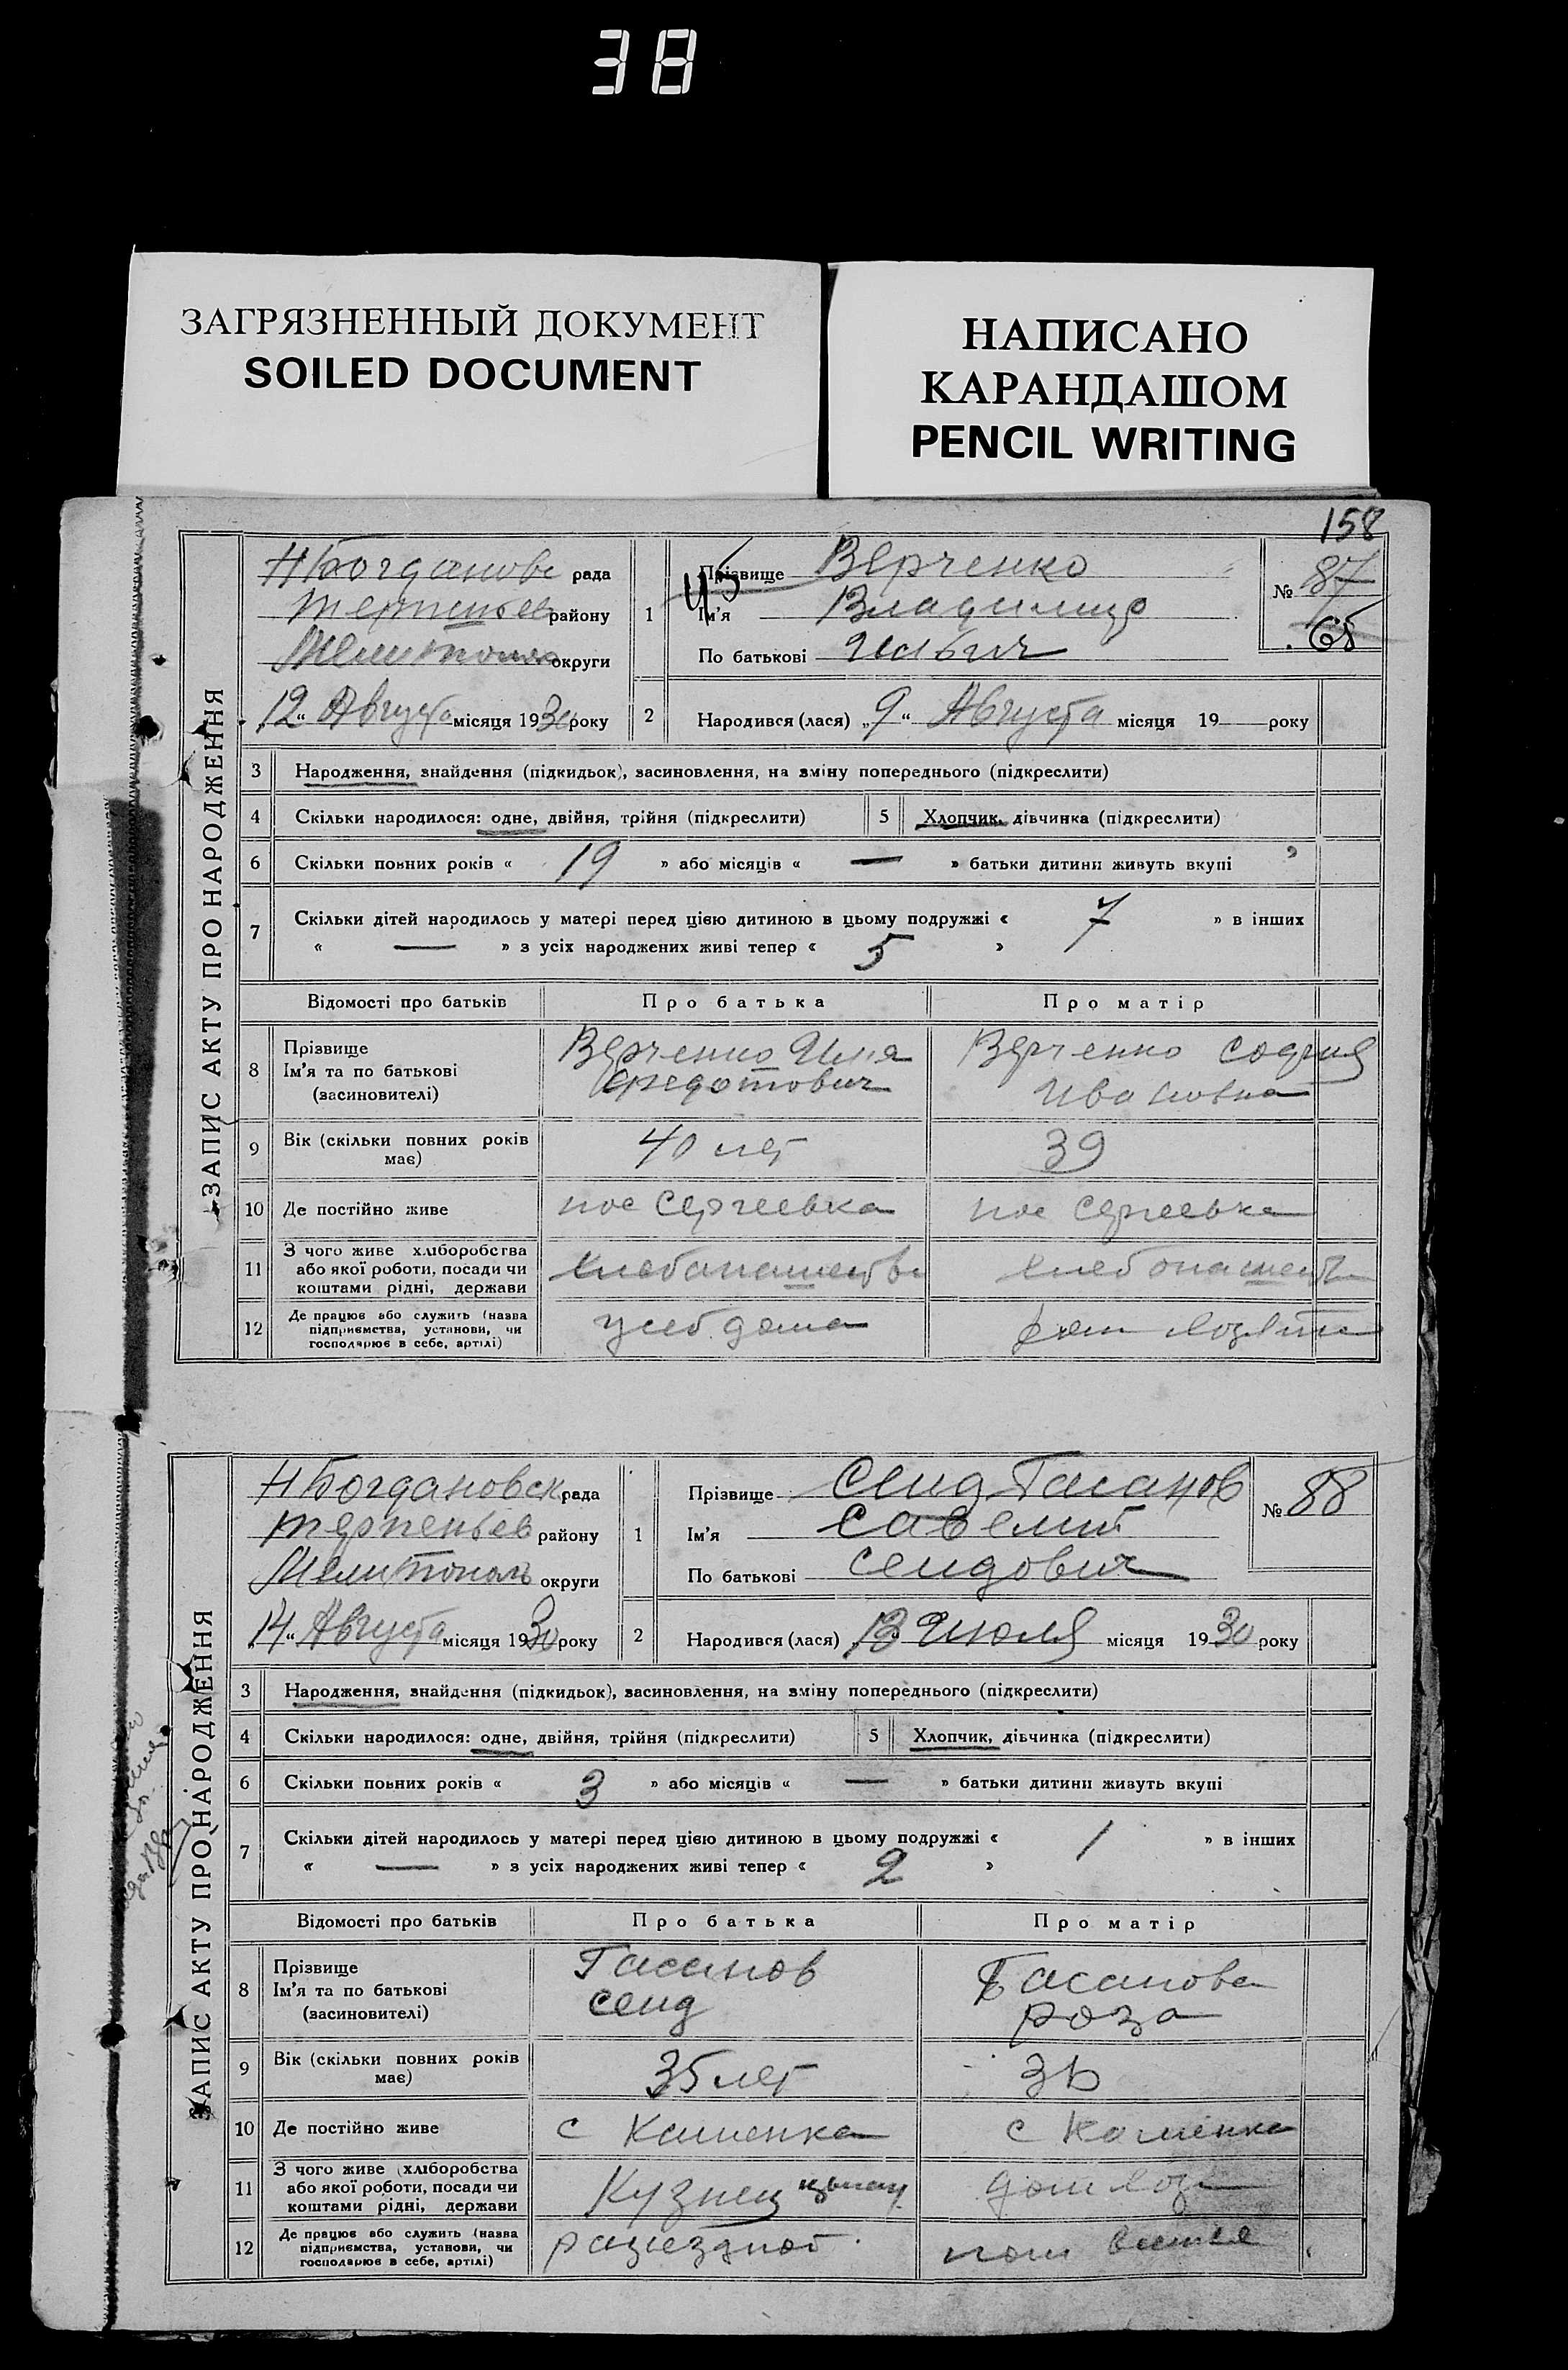 38
ЗАГРЯЗНЕННЫЙ ДОКУМЕНТ
SOILED DOCUMENT
НАПИСАНО
КАРАНДАШОМ
PENCIL WRITING
158
ЗАПИС АКТУ ПРО НАРОДЖЕННЯ
Н Богдановс рада
Терпеньев району
Мелитополь округи
„12“ Августа місяця 1930 року
45
1 Прізвище Верченко
Ім'я Владимир
По батькові Ильич
№ 87
68
2 Народився (лася) „9“ Августа місяця 19 року
3 Народження, знайдення (підкидьок), засиновлення, на зміну попереднього (підкреслити)
4 Скільки народилося: одне, двійня, трійня (підкреслити) 5 Хлопчик, дівчинка (підкреслити)
6 Скільки повних років « 19 » або місяців « — » батьки дитини живуть вкупі
7 Скільки дітей народилось у матері перед цією дитиною в цьому подружжі « 7 » в інших
« — » з усіх народжених живі тепер « 5 »
Відомості про батьків Про батька Про матір
8 Прізвище Верченко Илья Верченко София
Ім'я та по батькові Федотович Ивановна
(засиновителі)
9 Вік (скільки повних років має) 40 лет 39
10 Де постійно живе пос Сергеевка пос Сергеевка
11 З чого живе хліборобства
або якої роботи, посади чи хлебопашеств хлебопашеств
коштами рідні, держави
12 Де працює або служить (назва
підприємства, установи, чи у себ дома
господарює в себе, артілі)
ЗАПИС АКТУ ПРО НАРОДЖЕННЯ
Н Богдановск рада
Терпеньев району
Мелитополь округи
„14“ Августа місяця 1930 року
1 Прізвище Сеид Гасанов
Ім'я Савелий
По батькові Сеидович
№ 88
2 Народився (лася) „13 Июля місяця 1930 року
3 Народження, знайдення (підкидьок), засиновлення, на зміну попереднього (підкреслити)
4 Скільки народилося: одне, двійня, трійня (підкреслити) 5 Хлопчик, дівчинка (підкреслити)
6 Скільки повних років « 3 » або місяців « — » батьки дитини живуть вкупі
7 Скільки дітей народилось у матері перед цією дитиною в цьому подружжі « 1 » в інших
« — » з усіх народжених живі тепер « 2 »
Відомості про батьків Про батька Про матір
8 Прізвище Гасанов Гасанова
Ім'я та по батькові Сеид Роза
(засиновителі)
9 Вік (скільки повних років має) 35 лет
10 Де постійно живе с Каменка с Каменка
11 З чого живе (хліборобства
або якої роботи, посади чи Кузнец дом хоз
коштами рідні, держави
12 Де працює або служить (назва
підприємства, установи, чи разъездной
господарює в себе, артілі)